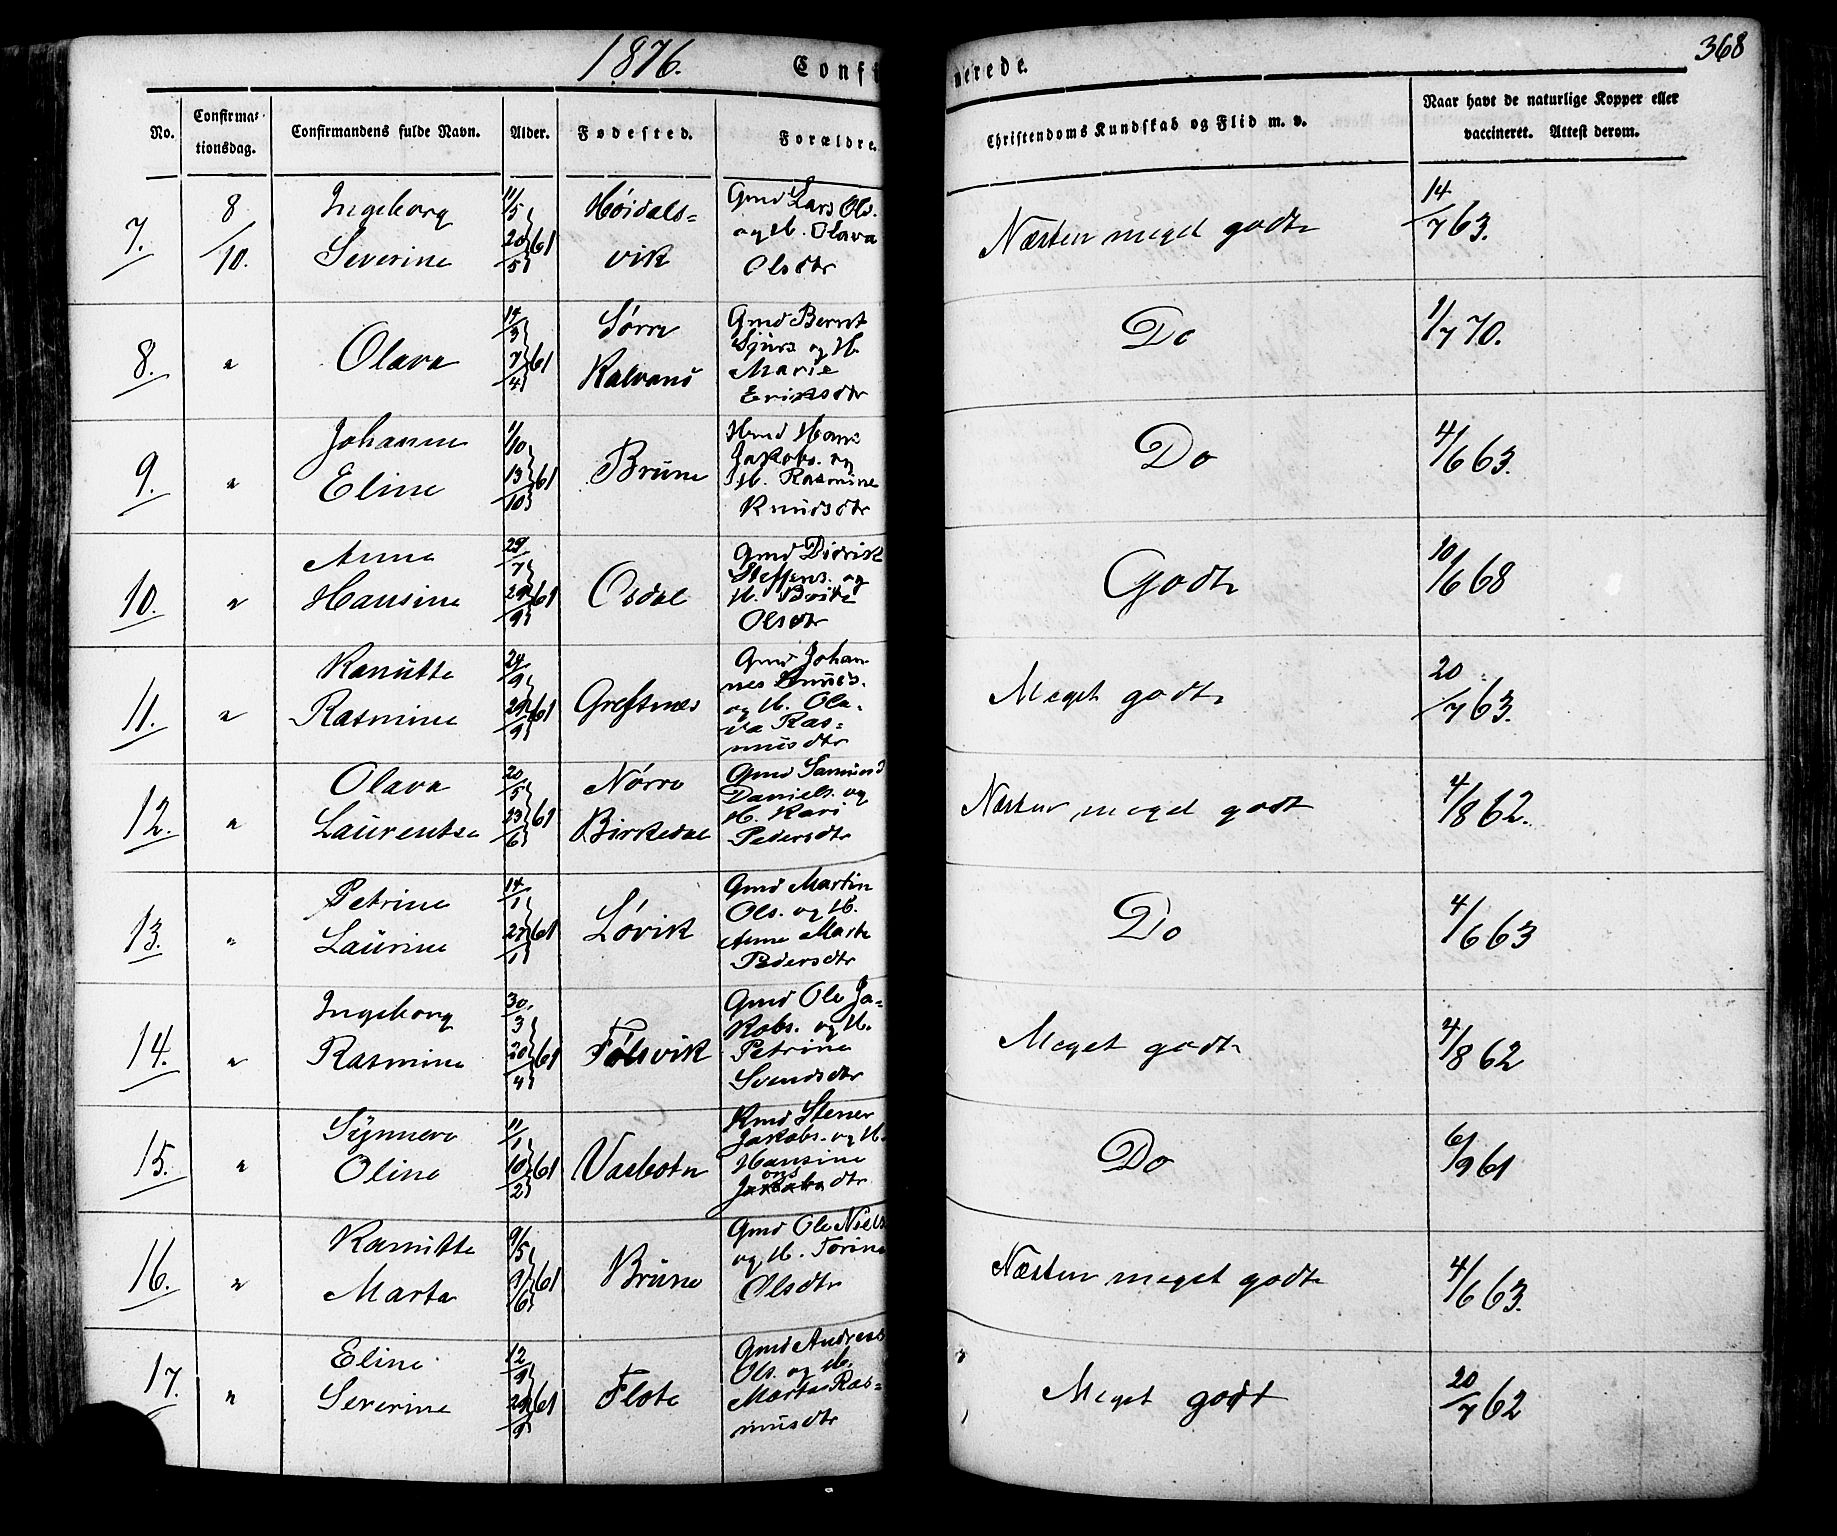 1876.
368
Confi
nerede.
No. Confirma=tionsdag. Confirmandens fulde Navn. Alder. Fødested. Forældre. Christendoms Kundskab og Flid m. v. Naar havt de naturlige Kopper eller vaccineret. Attest derom.
7. 8/10. Ingeborg Severine 11/5 20/5 61 Høidals=vik Gmd Lars Ols. og H. Olava Olsdtr Næsten meget godt 14/7 63.
8. " Olava 14/3 7/4 61 Sørre Kalvanes Gmd Bernt Sjurs og H. Marie Eriksdtr Do 1/7 70.
9. " Johanne Eline 1/10 13/10 61 Brune Hmd Hans Jakobs. og H. Rasmine Knudsdtr Do 4/6 63.
10. " Anne Hansine 29/7 29/9 61 Osdal Gmd Didrik Steffens. og H. Brite Olsdtr Godt 10/6 68
11. " Kanutte Rasmine 24/9 29/9 61 Greftnes Gmd Johannes Knuds. og H. Olava Ras=musdtr Meget godt 20/7 63.
12. " Olava Laurentse 20/5 23/6 61 Nørre Birkedal Gmd Samund Daniels. og H. Kari Pedersdtr Næsten meget godt 4/8 62.
13. " Petrine Laurine 14/1 27/1 61 Løvik Gmd Martin Ols. og H. Anne Marte Pedersdtr Do 4/6 63
14. " Ingeborg Rasmine 30/3 20/4 61 Følsvik Gmd Ole Ja=kobs. og H. Petrine Svendsdtr Meget godt 4/8 62
15. " Synneve Oline 11/1 10/2 61 Varbotn Kmd Stener Jakobs. og H. Hansine Jonsdtr Do 6/9 61
16. " Kanutte Marta 9/5 9/6 61 Brune Gmd Ole Niels. og H. Torine Olsdtr Næsten meget godt 4/6 63.
17. " Eline Severine 12/9 29/9 61 Flote Gmd Andreas Ols. og H. Marta Ras=musdtr Meget godt 20/7 62